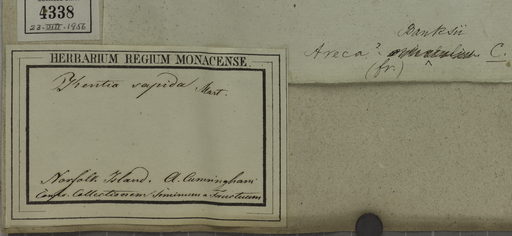 4338
23-VIII-1956
Banksii
Areca? C.
(fr.) ^
HERBARIUM REGIUM MONACENSE.
Kentia sapida Mart.
Norfolk Island. A. Cunningham
Confer. Collectionem Seminum & Fructuum